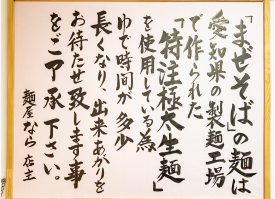 「まぜそば」の麺は
愛知県の製麺工場
で作られた
「特注極太生麺」
を使用している為
ゆで時間が多少
長くなり、出来あがりを
お待たせ致します事
をご了承下さい。
麺屋なら 店主